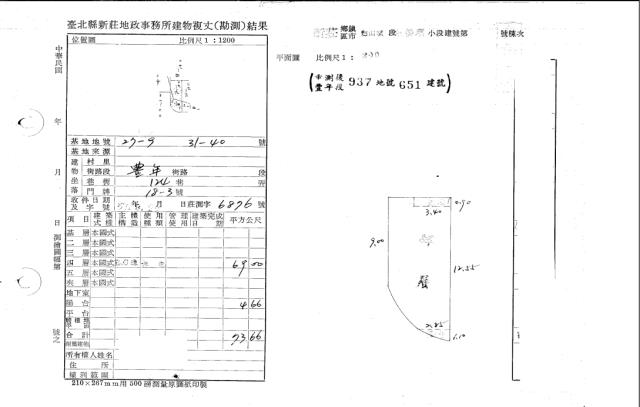 臺北縣新莊地政事務所建物複丈(勘測)結果
中華民國 年 月 日 測繪圖經第 號之
位置圖 比例尺1:1200
基地地號 27-9 31-40 號
基地來源
建物坐落
村里
街路段 豐年 街路 段
巷衖 124巷 弄
門牌 18-3號
收件日期及字號 年 月 日莊測字 6876 號
項目 建築式樣 主體構造 使用種類 管理使用 建築完成日期 平方公尺
基層 本國式
二層 本國式
三層 本國式
四層 本國式 69.00
五層 本國式
層 本國式
地下室
陽台 4.66
平台
合計 73.66
所有權人姓名
住所
權利範圍
210×267mm用500磅測量原圖紙印製
鄉鎮區市 段 小段建號第 號棟次
平面圖 比例尺1:
(重測後豐年段 937 地號 651 建號)
0.90
3.40
9.00
12.55
2.85
1.10